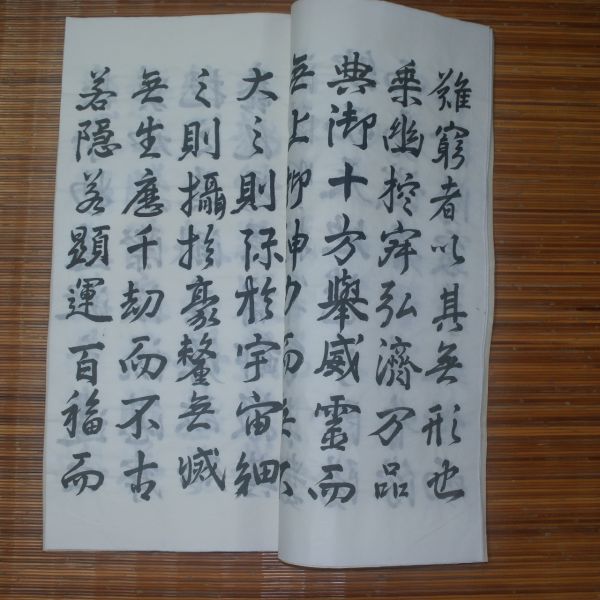 難窮者以其無形也
乗幽控寂弘濟万品
典御十方舉威靈而
無上抑神力而
大之則弥於宇宙細
之則攝於豪釐無滅
無生歷千劫而不古
若隱若顯運百福而